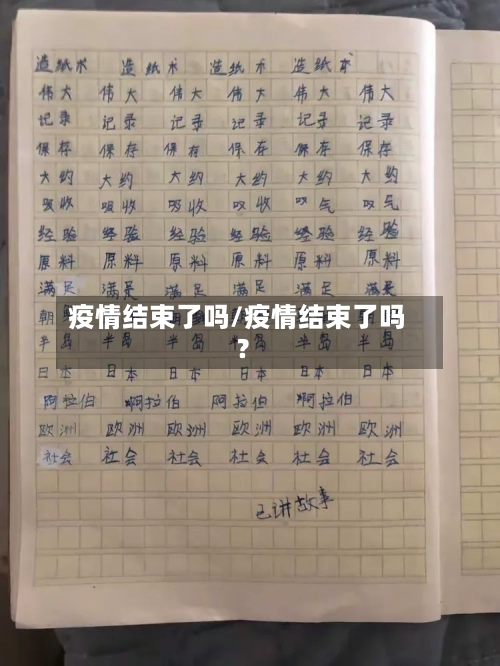 造纸术 造纸术 造纸术 造纸术
伟大 伟大 伟大 伟大 伟大 伟大
记录 记录 记录 记录 记录 记录
保存 保存 保存 保存 保存 保存
大约 大约 大约 大约 大约 大约
吸收 吸收 吸收 吸收 吸气 吸气
经验 经验 经验 经验 经验 经验
原料 原料 原料 原料 原料 原料
满足 满足 满足 满足 满足 满足
朝
疫情结束了吗/疫情结束了吗
?
半岛 半岛 半岛 半岛 半岛 半岛
日本 日本 日本 日本 日本 日本
阿拉伯 阿拉伯 阿拉伯 阿拉伯
欧洲 欧洲 欧洲 欧洲 欧洲 欧洲
社会 社会 社会 社会 社会 社会
已讲故事